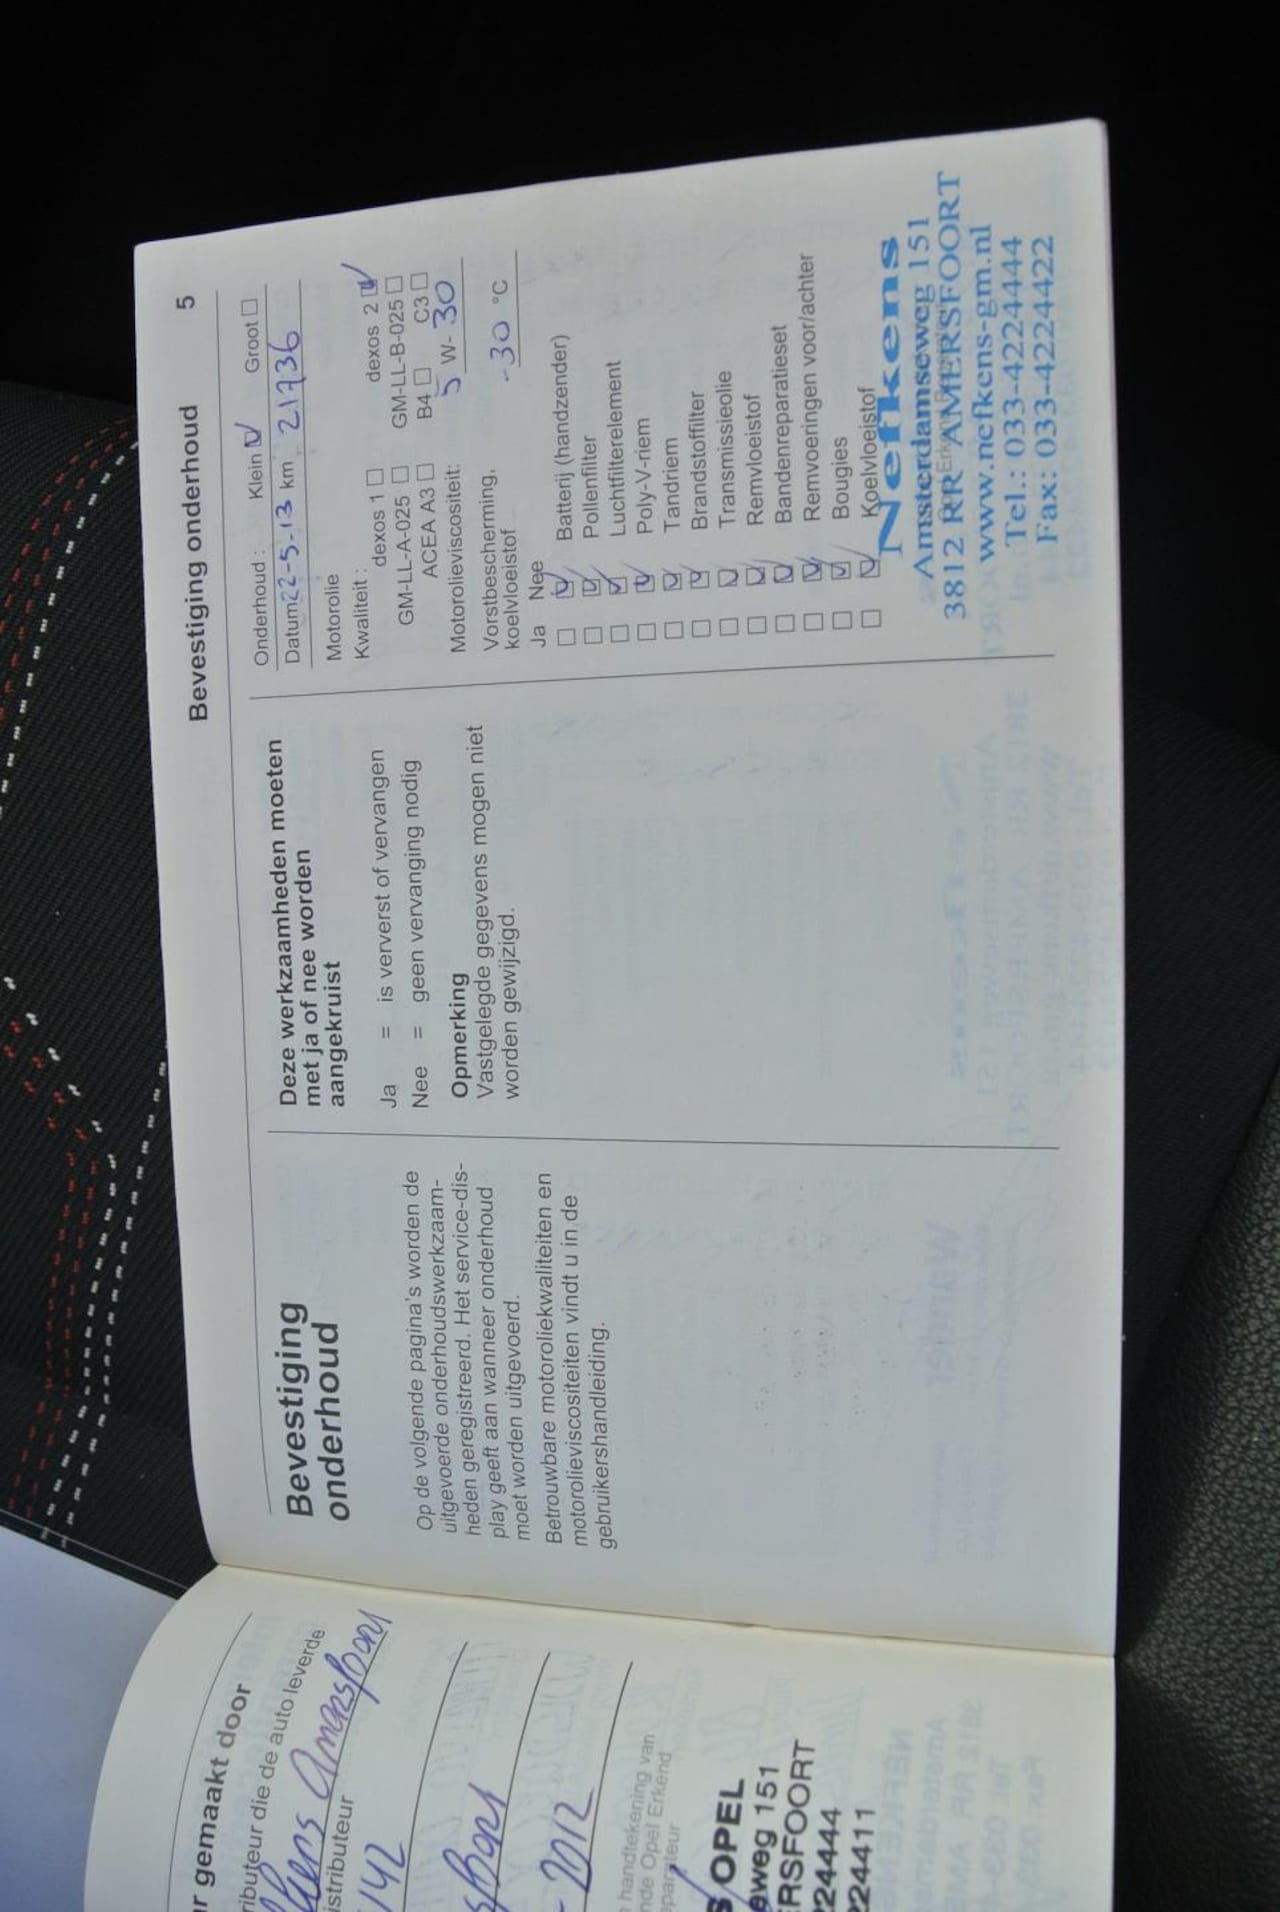 r gemaakt door
ributeur die de auto leverde
kens Amersfoort
stributeur
142
sfoort
- 2012
handtekening van
nde Opel Erkend
eparateur
S OPEL
eweg 151
RSFOORT
224444
224411
Bevestiging onderhoud 5
Bevestiging
onderhoud
Op de volgende pagina's worden de
uitgevoerde onderhoudswerkzaam-
heden geregistreerd. Het service-dis-
play geeft aan wanneer onderhoud
moet worden uitgevoerd.
Betrouwbare motoroliekwaliteiten en
motorolieviscositeiten vindt u in de
gebruikershandleiding.
Deze werkzaamheden moeten
met ja of nee worden
aangekruist
Ja = is ververst of vervangen
Nee = geen vervanging nodig
Opmerking
Vastgelegde gegevens mogen niet
worden gewijzigd.
Onderhoud : Klein ☑ Groot ☐
Datum 22-5-13 km 21736
Motorolie
Kwaliteit :
dexos 1 ☐ dexos 2 ☑
GM-LL-A-025 ☐ GM-LL-B-025 ☐
ACEA A3 ☐ B4 ☐ C3 ☐
Motorolieviscositeit: 5 W- 30
Vorstbescherming,
koelvloeistof -30 °C
Ja Nee
☐ ☑ Batterij (handzender)
☐ ☑ Pollenfilter
☐ ☑ Luchtfilterelement
☐ ☑ Poly-V-riem
☐ ☑ Tandriem
☐ ☑ Brandstoffilter
☐ ☑ Transmissieolie
☐ ☑ Remvloeistof
☐ ☑ Bandenreparatieset
☐ ☑ Remvoeringen voor/achter
☐ ☑ Bougies
☐ ☑ Koelvloeistof
Nefkens
Amsterdamseweg 151
3812 RR AMERSFOORT
www.nefkens-gm.nl
Tel.: 033-4224444
Fax: 033-4224422